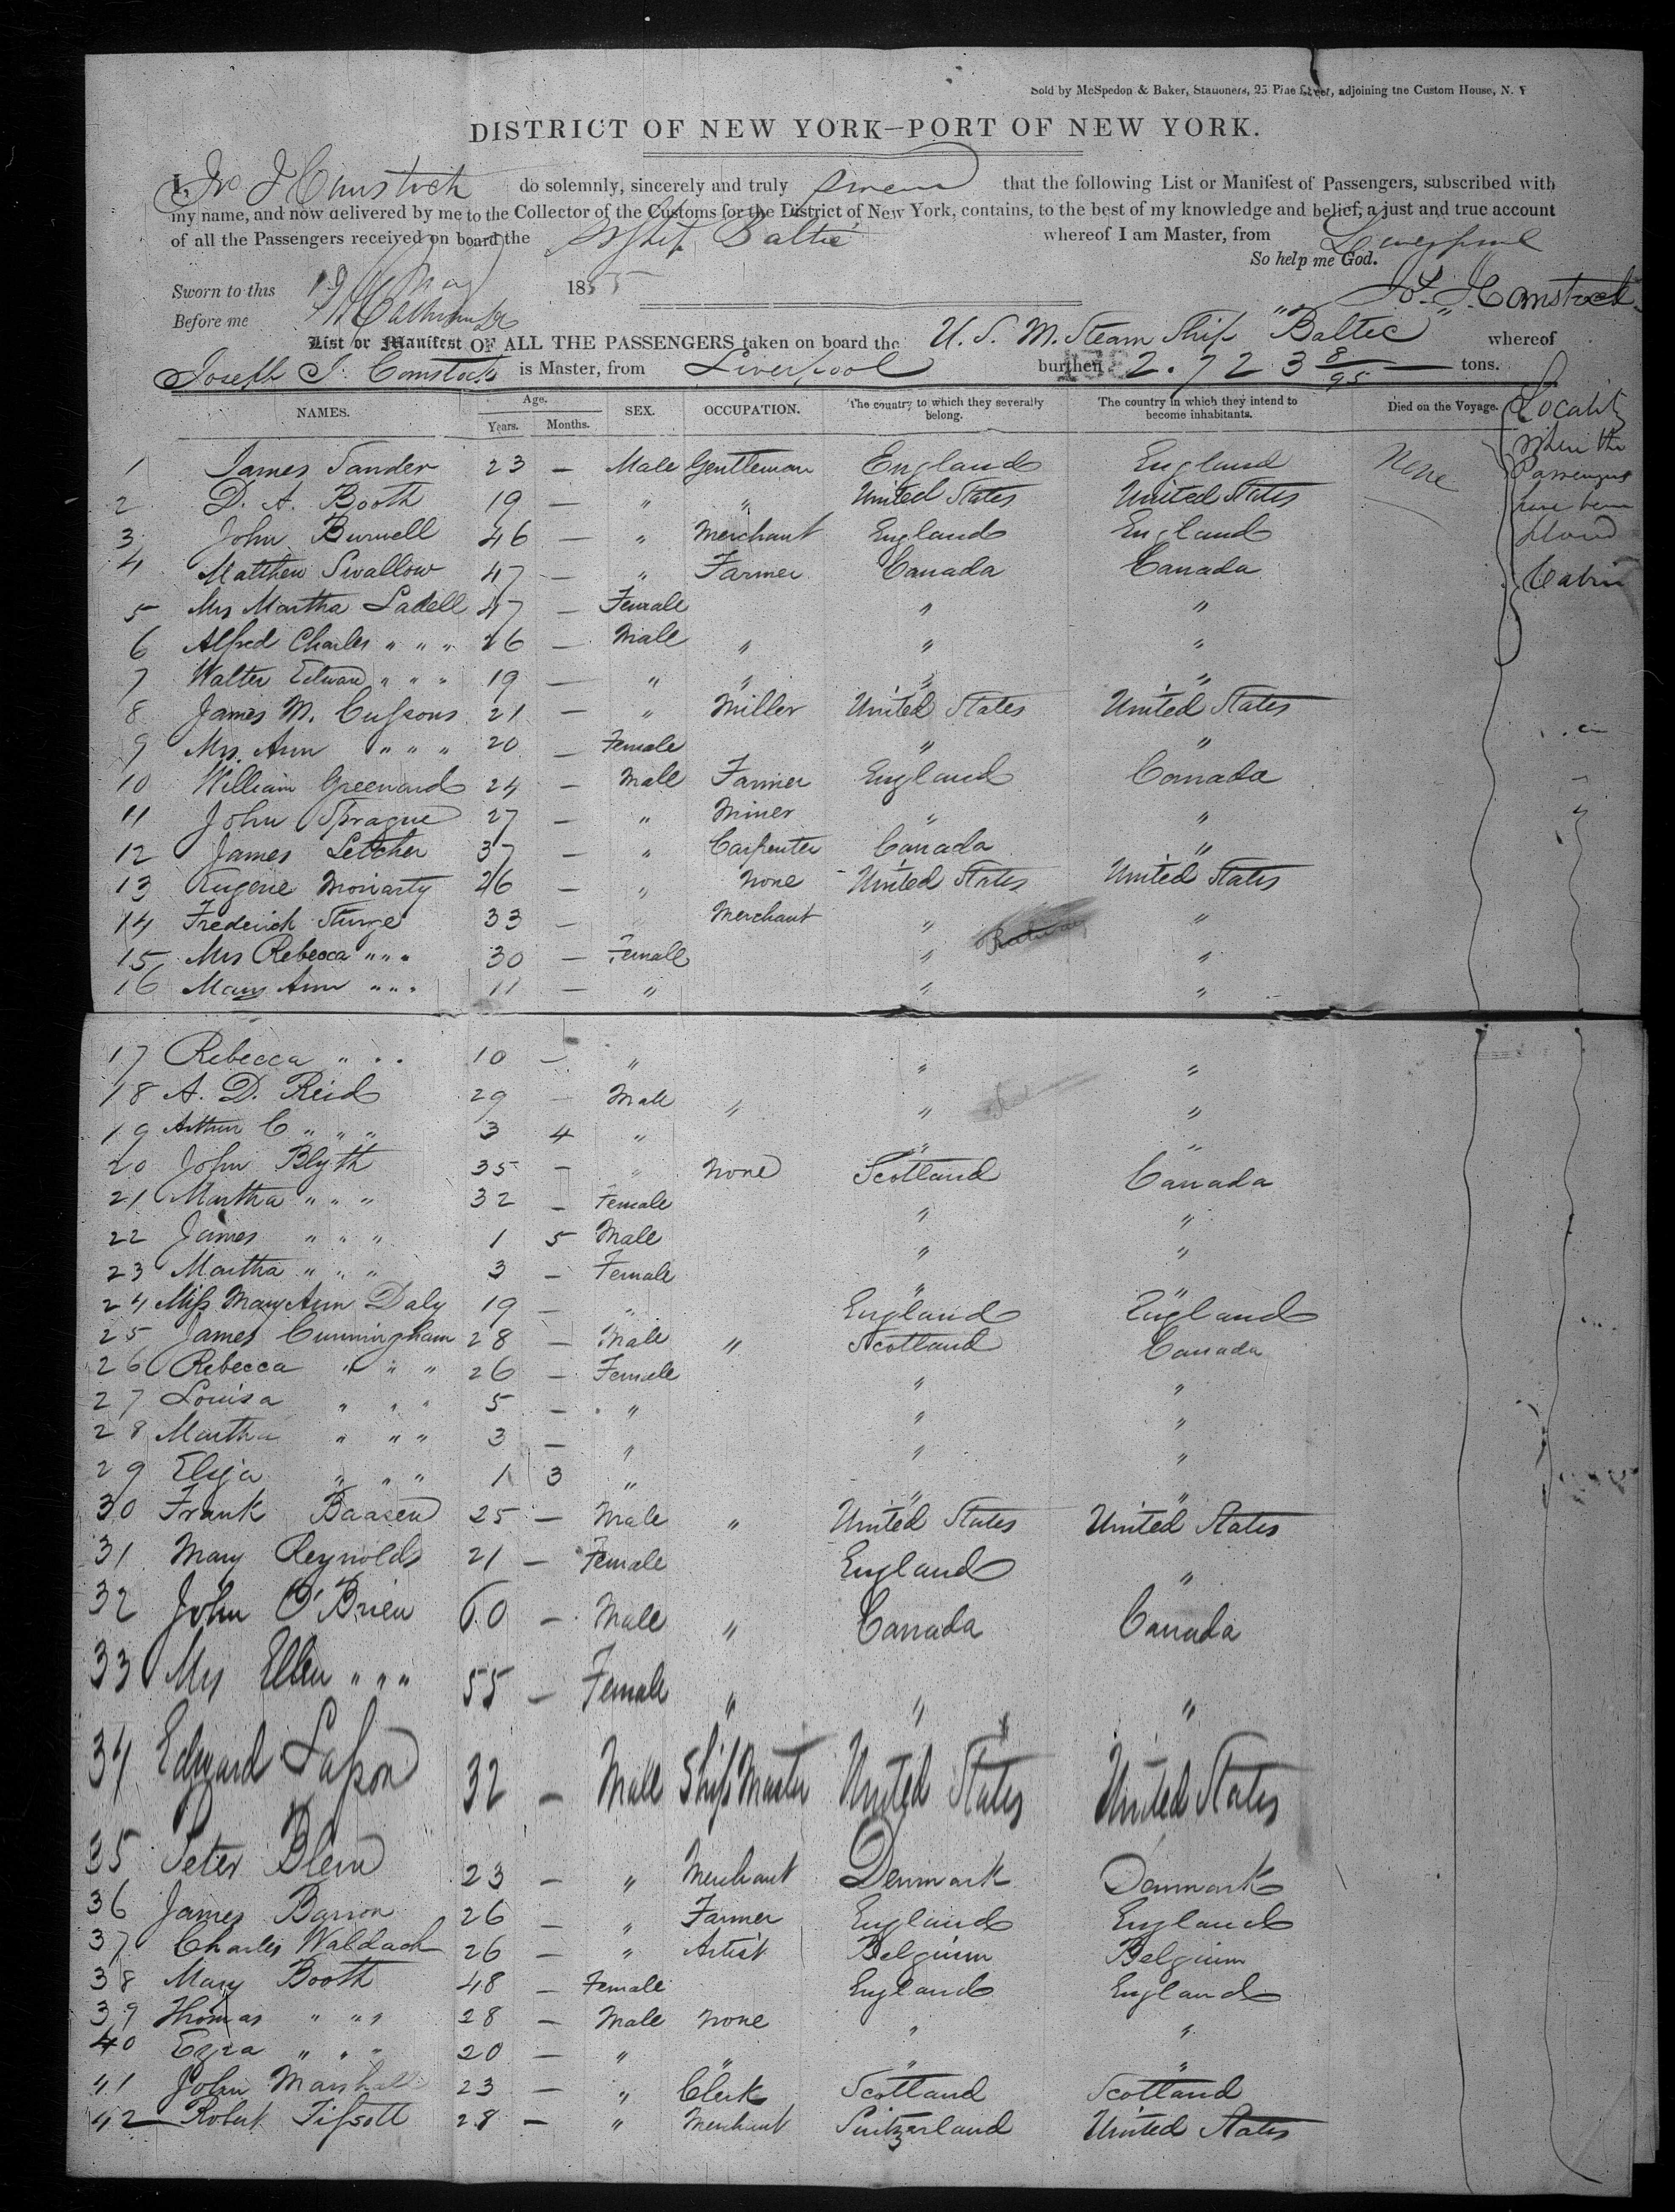 Sold by McSpedon & Baker, Stationers, 25 Pine Street, adjoining the Custom House, N. Y
DISTRICT OF NEW YORK—PORT OF NEW YORK.
I, Jos J Comstock do solemnly, sincerely and truly swear that the following List or Manifest of Passengers, subscribed with
my name, and now delivered by me to the Collector of the Customs for the District of New York, contains, to the best of my knowledge and belief, a just and true account
of all the Passengers received on board the S Ship Baltic whereof I am Master, from Liverpool
So help me God.
Sworn to this 19 May 1855
Jos. J. Comstock
Before me
List or Manifest OF ALL THE PASSENGERS taken on board the U. S. M. Steam Ship "Baltic" whereof
Joseph J. Comstock is Master, from Liverpool burthen 2.723 8/95 tons.
NAMES. Age. Years. Months. SEX. OCCUPATION. The country to which they severally belong. The country in which they intend to become inhabitants. Died on the Voyage. Locality where the Passengers have been placed
1 James Sander 23 — Male Gentleman England England None
2 D. A. Booth 19 — " " United States United States
3 John Burwell 46 — " Merchant England England
4 Matthew Swallow 47 — " Farmer Canada Canada Cabin
5 Mrs Martha Ladell 47 — Female " "
6 Alfred Charles " " " 26 — Male " " "
7 Walter Edward " " " 19 — " " " "
8 James M. Cussons 21 — " Miller United States United States
9 Mrs. Ann " " " 20 — Female " "
10 William Greenard 24 — Male Farmer England Canada
11 John Sprague 27 — " Miner " "
12 James Letcher 37 — " Carpenter Canada "
13 Eugene Moriarty 26 — " None United States United States
14 Frederick Sturge 33 — Merchant " "
15 Mrs Rebecca " " " 30 — Female " "
16 Mary Ann " " " 11 — " " "
17 Rebecca " " " 10 — " " "
18 A. D. Reid 29 — Male " " "
19 Arthur C " " " 3 4 " " "
20 John Blyth 35 — " None Scotland Canada
21 Martha " " " 32 — Female " "
22 James " " " 1 5 Male " "
23 Martha " " " 3 — Female " "
24 Miss Mary Ann Daly 19 — " England England
25 James Cunningham 28 — Male " Scotland Canada
26 Rebecca " " " 26 — Female " "
27 Louisa " " " 5 — " " "
28 Martha " " " 3 — " " "
29 Eliza " " " 1 3 " " "
30 Frank Baasen 25 — Male " United States United States
31 Mary Reynolds 21 — Female England "
32 John O'Brien 60 — Male " Canada Canada
33 Mrs Ellen " " " 55 — Female " " "
34 Edward Lasson 32 — Male Ship Master United States United States
35 Peter Blem 23 — " Merchant Denmark Denmark
36 James Barron 26 — " Farmer England England
37 Charles Waldack 26 — " Artist Belgium Belgium
38 Mary Booth 48 — Female England England
39 Thomas " " " 28 — Male None " "
40 Ezra " " " 20 — " " " "
41 John Marshall 23 — " Clerk Scotland Scotland
42 Robert Tissott 28 — " Merchant Switzerland United States